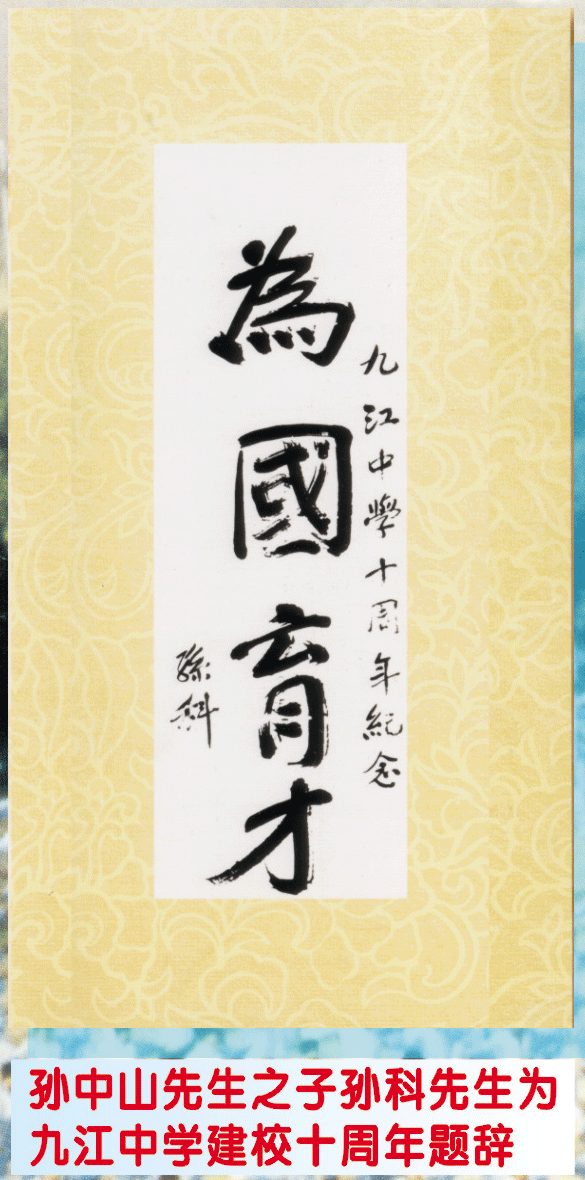 九江中學十周年紀念
為國育才
孫科
孙中山先生之子孙科先生为
九江中学建校十周年题辞